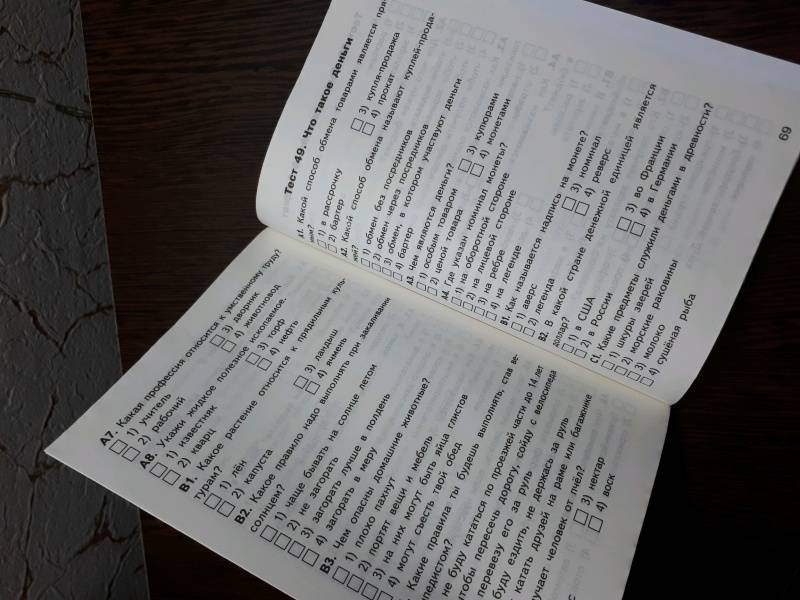 А7. Какая профессия относится к умственному труду?
1) учитель 3) дворник
2) рабочий 4) животновод
А8. Укажи жидкое полезное ископаемое.
1) известняк 3) торф
2) кварц 4) нефть
В1. Какое растение относится к прядильным куль-
турам?
1) лён 3) ландыш
2) капуста 4) ячмень
В2. Какое правило надо выполнять при закаливании
солнцем?
1) чаще бывать на солнце летом
2) не загорать
3) загорать лучше в полдень
4) загорать в меру
В3. Чем опасны домашние животные?
1) плохо пахнут
2) портят вещи и мебель
3) на них могут быть яйца глистов
4) могут съесть твой обед
Какие правила ты будешь выполнять, став ве-
педистом?
не буду кататься по проезжей части до 14 лет
чтобы пересечь дорогу, сойду с велосипеда
перевезу его за руль
буду ездить, не держась за руль
катать друзей на раме или багажнике
лучает человек от пчёл?
3) нектар
4) воск
Тест 49. Что такое деньги
А1. Какой способ обмена товарами является пря-
мым?
1) в рассрочку 3) купля-продажа
2) бартер 4) прокат
А2. Какой способ обмена называют куплей-прода-
жей?
1) обмен без посредников
2) обмен через посредников
3) обмен, в котором участвуют деньги
4) бартер
А3. Чем являются деньги?
1) особым товаром 3) купюрами
2) ценой товара 4) монетами
А4. Где указан номинал монеты?
1) на оборотной стороне
2) на лицевой стороне
3) на ребре
4) на легенде
В1. Как называется надпись на монете?
1) аверс 3) номинал
2) легенда 4) реверс
В2. В какой стране денежной единицей является
доллар?
1) в США 3) во Франции
2) в России 4) в Германии
С1. Какие предметы служили деньгами в древности?
1) шкуры зверей
2) морские раковины
3) молоко
4) сушёная рыба
69